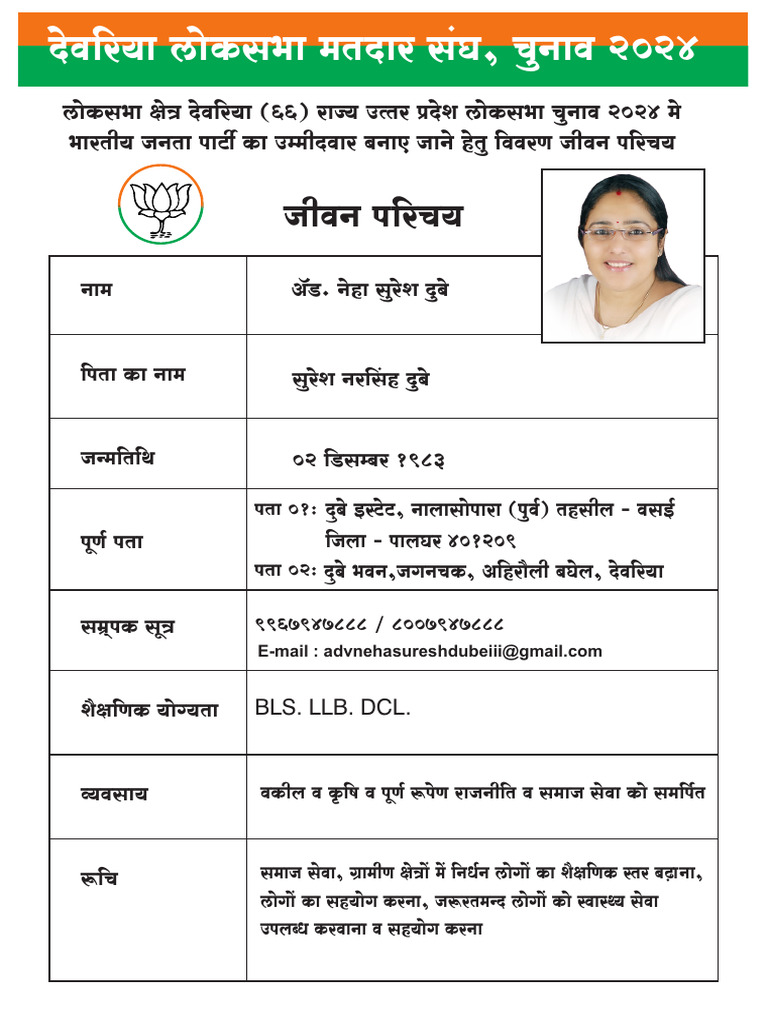 देवरिया लोकसभा मतदार संघ, चुनाव २०२४
लोकसभा क्षेत्र देवरिया (६६) राज्य उत्तर प्रदेश लोकसभा चुनाव २०२४ मे
भारतीय जनता पार्टी का उम्मीदवार बनाए जाने हेतु विवरण जीवन परिचय
जीवन परिचय
नाम
ॲड. नेहा सुरेश दुबे
पिता का नाम
सुरेश नरसिंह दुबे
जन्मतिथि
०२ डिसम्बर १९८३
पूर्ण पता
पता ०१: दुबे इस्टेट, नालासोपारा (पुर्व) तहसील - वसई
जिला - पालघर ४०१२०९
पता ०२: दुबे भवन,जगनचक, अहिरौली बघेल, देवरिया
सम्र्पक सूत्र
९९६७९४७८८८ / ८००७९४७८८८
E-mail : advnehasureshdubeiii@gmail.com
शैक्षणिक योग्यता
BLS. LLB. DCL.
व्यवसाय
वकील व कृषि व पूर्ण रूपेण राजनीति व समाज सेवा को समर्पित
रूचि
समाज सेवा, ग्रामीण क्षेत्रों में निर्धन लोगों का शैक्षणिक स्तर बढ़ाना,
लोगों का सहयोग करना, जरूरतमन्द लोगों को स्वास्थ्य सेवा
उपलब्ध करवाना व सहयोग करना